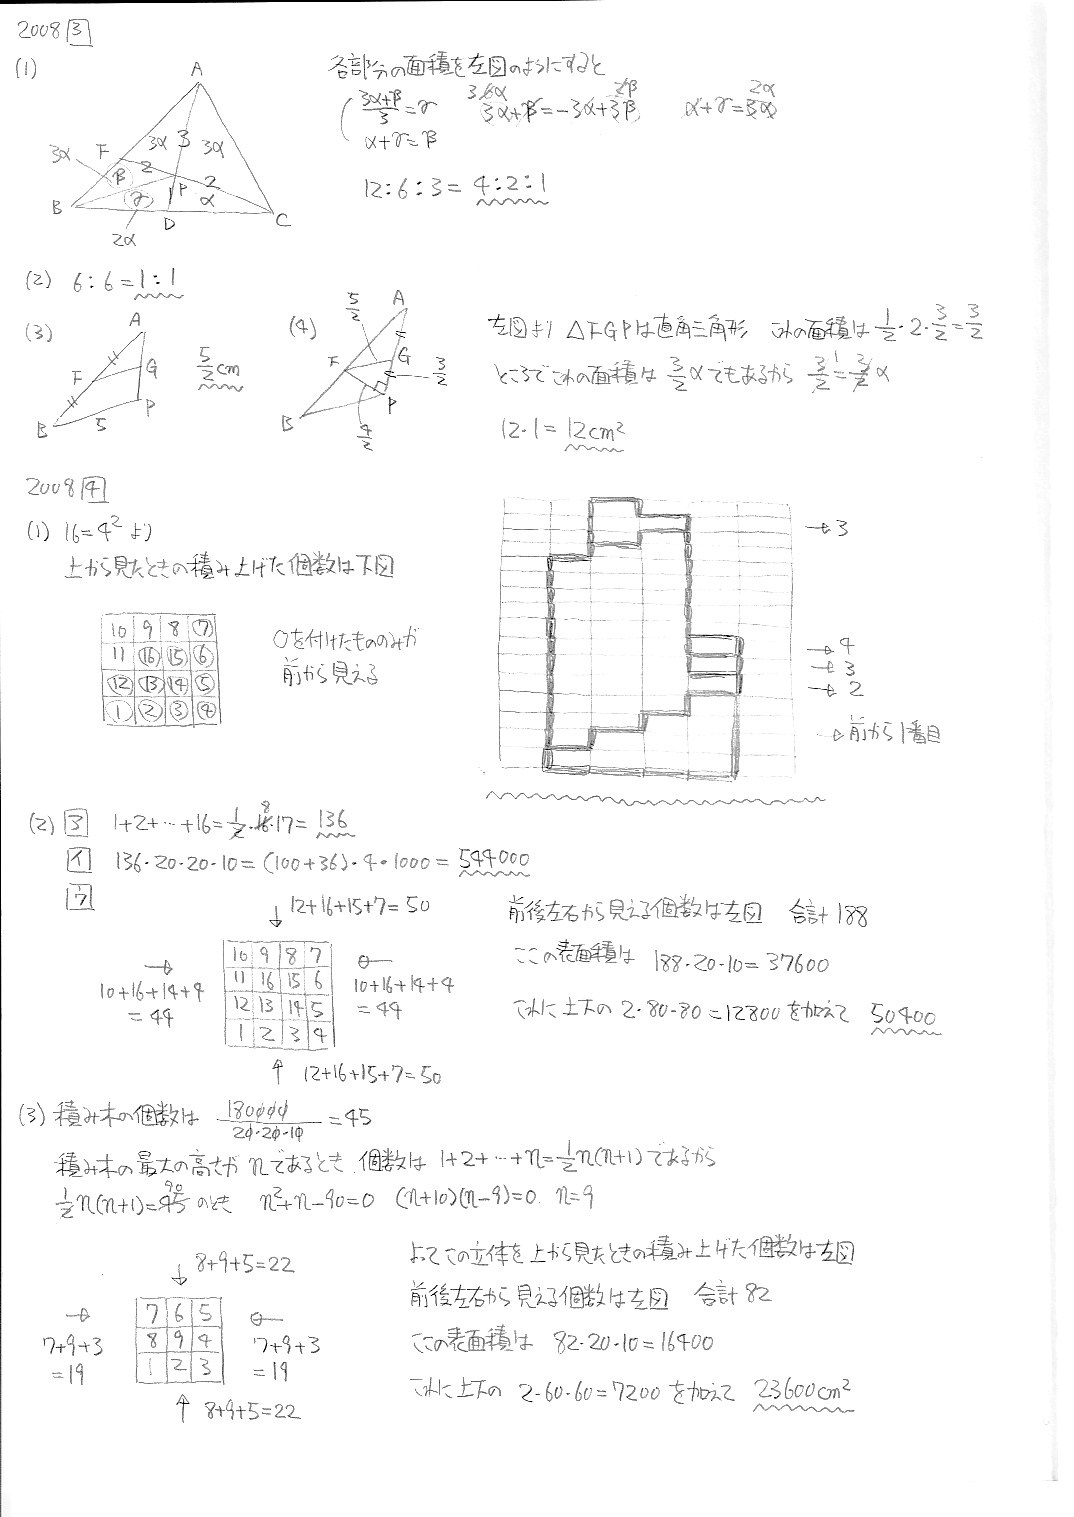 2008 3
(1)
A
F
B
D
C
P
3α
3
3α
3α
β
2
2
γ
1
α
2α
各部分の面積を左図のようにすると
(3α+β)/3=γ
3α+β=-3α+3β
α+γ=3α
2α
α+γ=β
12:6:3=4:2:1
(2) 6:6=1:1
(3)
A
F
G
B
P
5
5/2cm
(4)
A
5/2
F
G
3/2
P
B
4/2
左図より △FGPは直角三角形 これの面積は 1/2・2・3/2=3/2
ところでこれの面積は 3/2αでもあるから 3/2=3/2α
1
12・1=12cm²
2008 4
(1) 16=4²より
上から見たときの積み上げた個数は下図
10 9 8 7
11 16 15 6
12 13 14 5
1 2 3 4
○を付けたもののみが
前から見える
→3
→4
→3
→2
→前から1番目
(2) ア 1+2+…+16=1/2・16・17=136
8
イ 136・20・20・10=(100+36)・4・1000=544000
ウ
↓12+16+15+7=50
10 9 8 7
11 16 15 6
12 13 14 5
1 2 3 4
→
10+16+14+4
=44
←
10+16+14+4
=44
↑ 12+16+15+7=50
前後左右から見える個数は左図 合計188
ここの表面積は 188・20・10=37600
これに上下の 2・80・80=12800を加えて 50400
(3) 積み木の個数は 180000/20・20・10=45
積み木の最大の高さがnであるとき、個数は 1+2+…+n=1/2n(n+1)であるから
1/2n(n+1)=45のとき n²+n-90=0 (n+10)(n-9)=0. n=9
90
↓8+9+5=22
7 6 5
8 9 4
1 2 3
→
7+9+3
=19
←
7+9+3
=19
↑ 8+9+5=22
よってこの立体を上から見たときの積み上げた個数は左図
前後左右から見える個数は左図 合計82
ここの表面積は 82・20・10=16400
これに上下の 2・60・60=7200を加えて 23600cm²